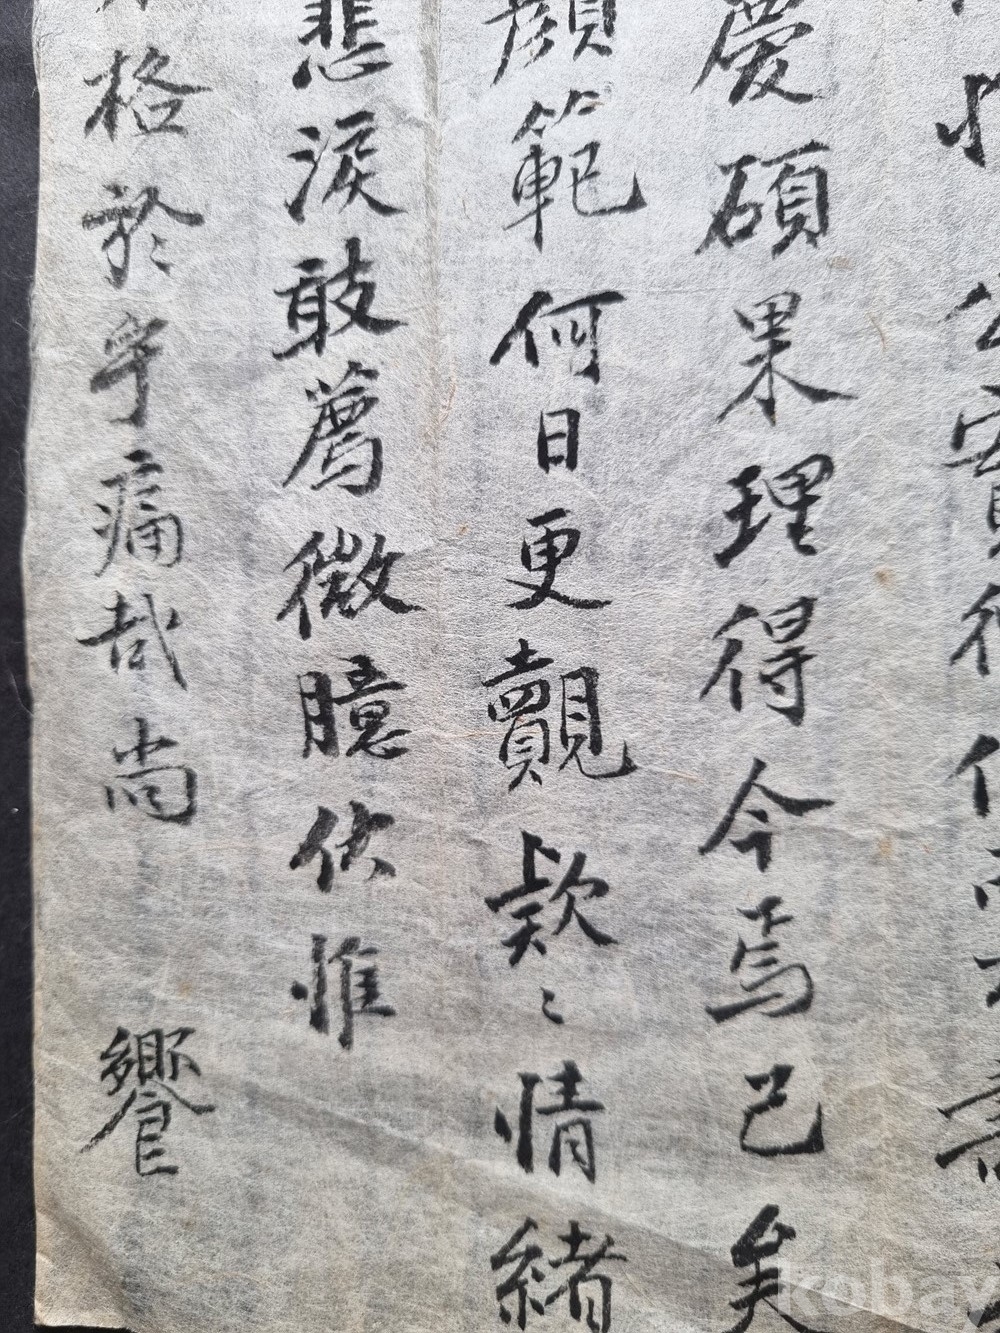 公
慶碩果理得今焉已矣
顔範何日更覿款〻情緖
悲淚敢薦微臆伏惟
格於乎痛哉尙 饗
kobay